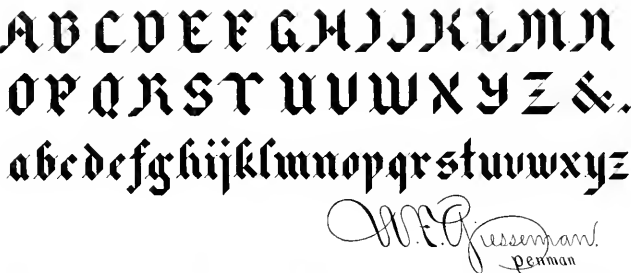 A B C D E F G H I J K L M N
O P Q R S T U V W X Y Z &.
abcdefghijklmnopqrstuvwxyz
W. F. Giesseman.
penman